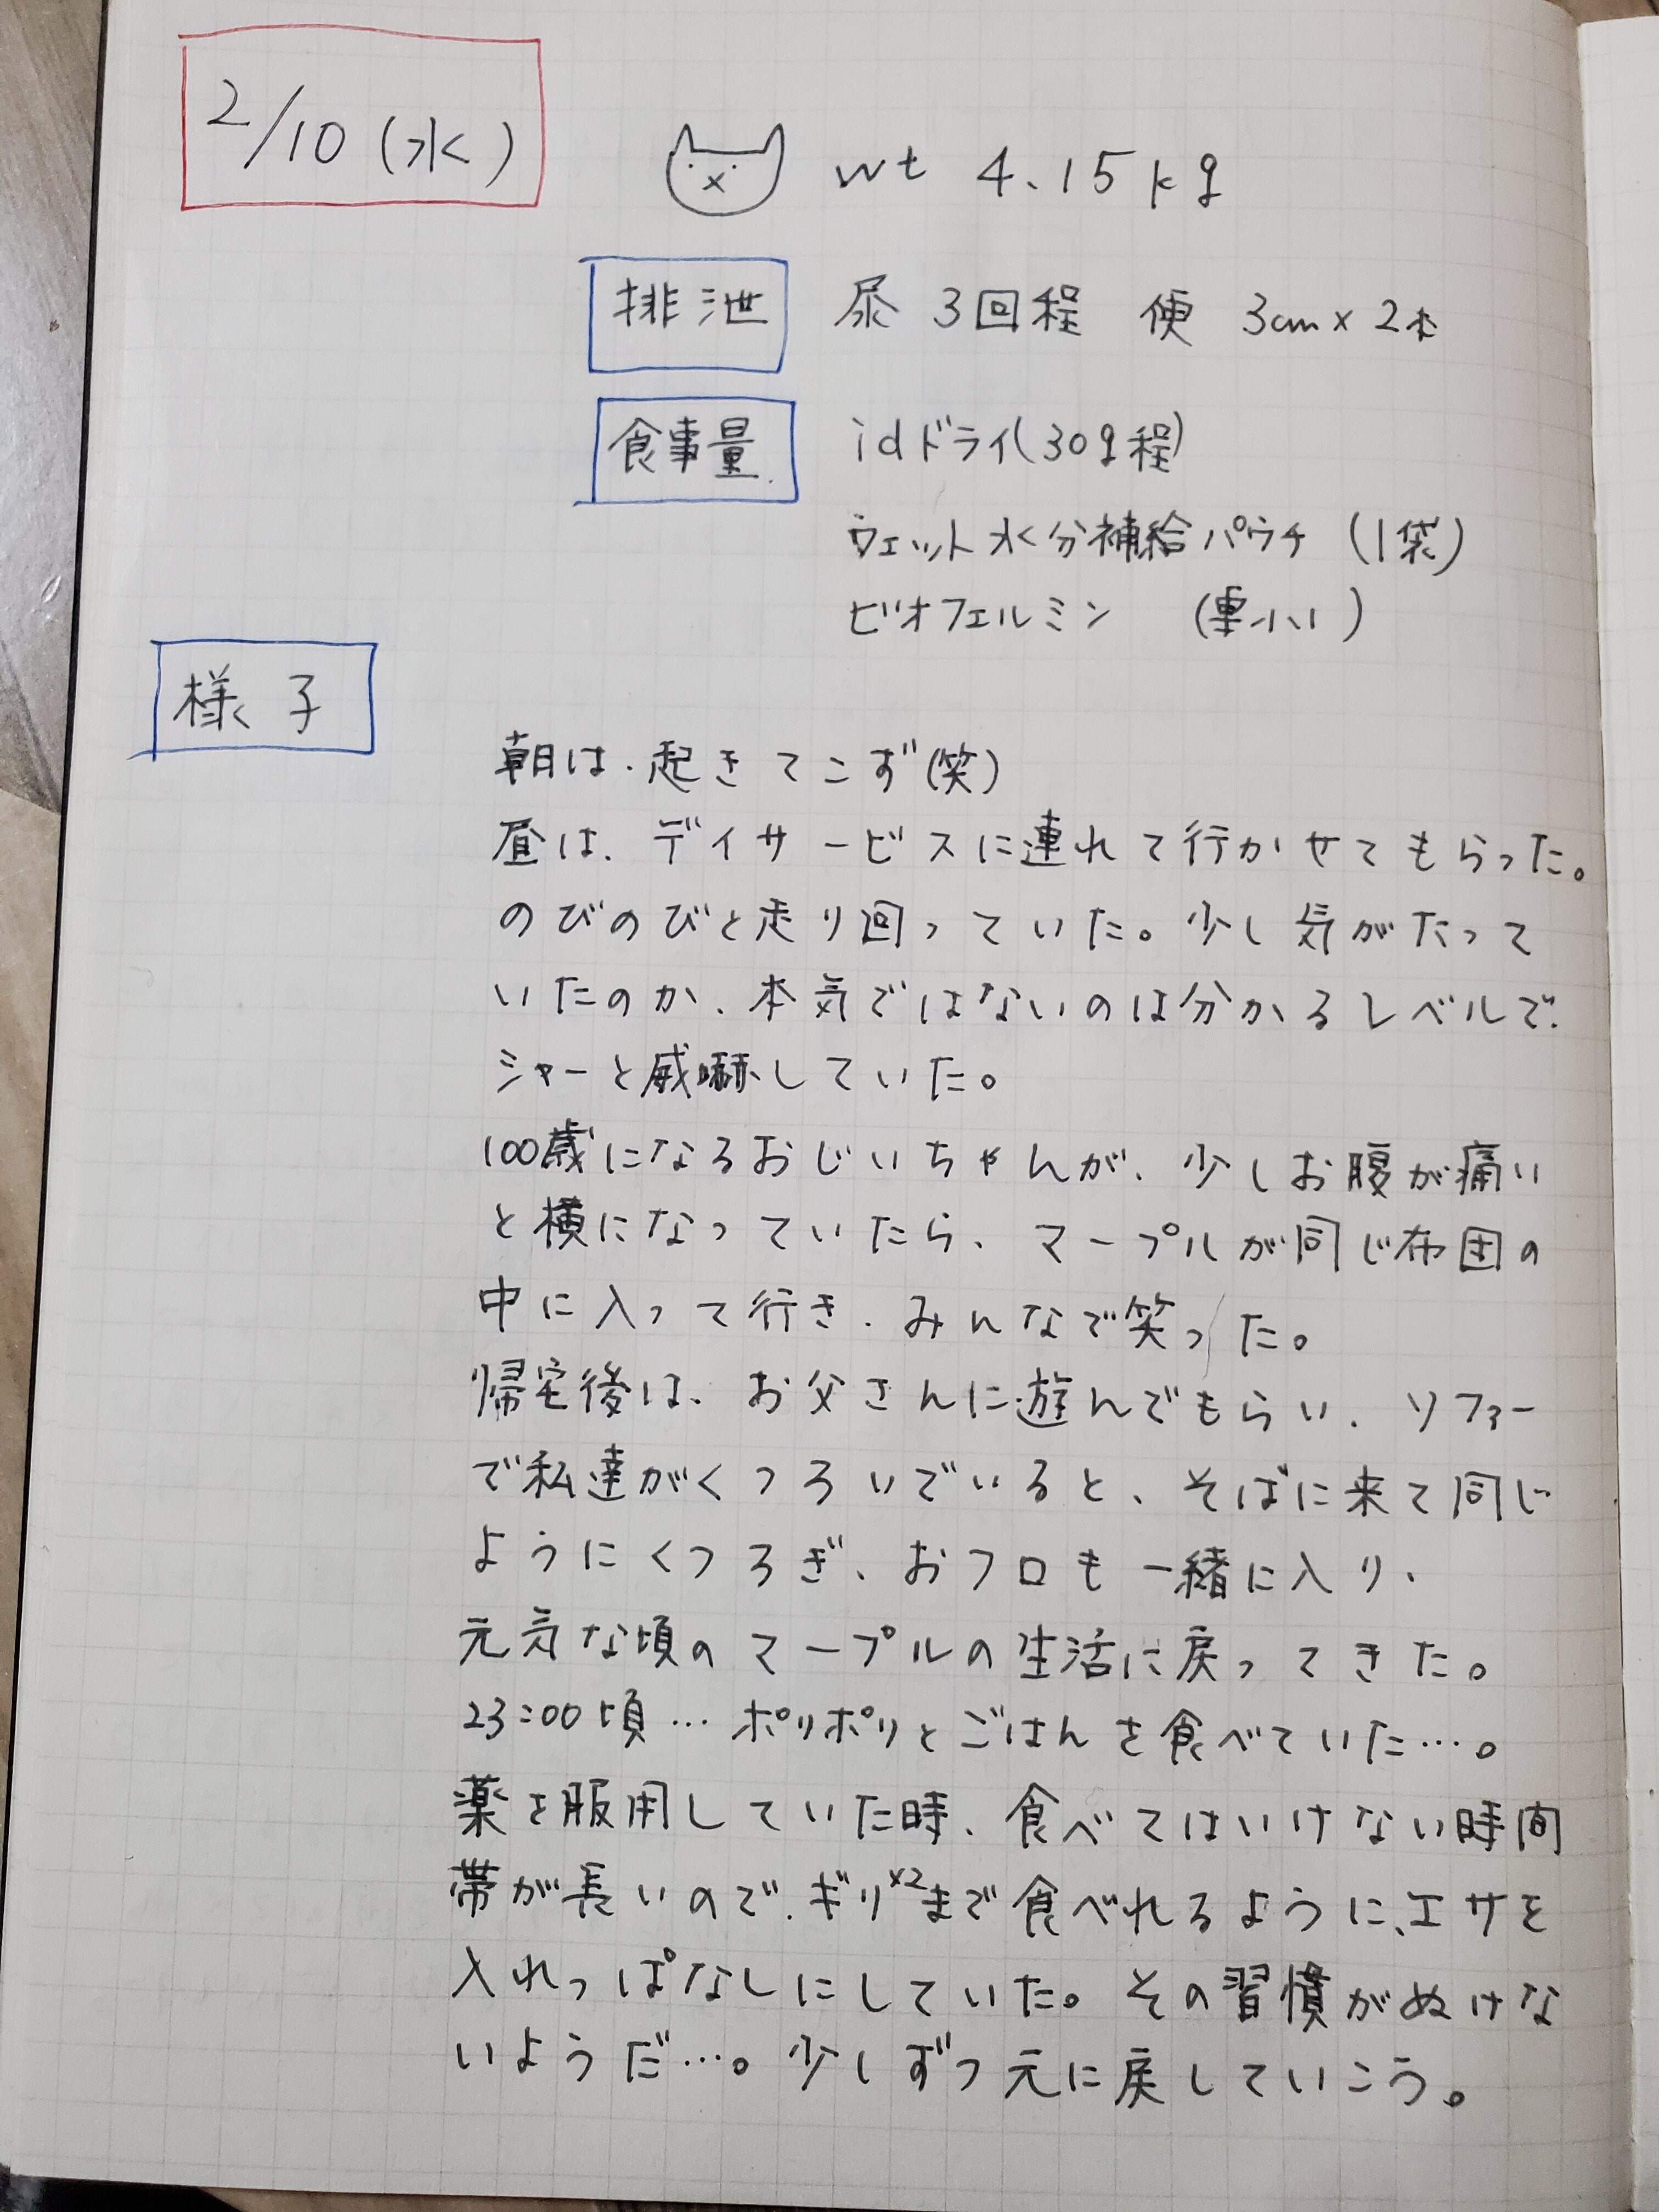 2/10 (水)
wt 4.15kg
排泄 尿 3回程 便 3cm×2本
食事量 idドライ(30g程)
ウェット水分補給パウチ (1袋)
ビオフェルミン
様子
朝は、起きてこず(笑)
昼は、デイサービスに連れて行かせてもらった。
のびのびと走り回っていた。少し気がたって
いたのか、本気ではないのは分かるレベルで、
シャーと威嚇していた。
100歳になるおじいちゃんが、少しお腹が痛い
と横になっていたら、マープルが同じ布団の
中に入って行き、みんなで笑った。
帰宅後は、お父さんに遊んでもらい、ソファー
で私達がくつろいでいると、そばに来て同じ
ようにくつろぎ、おフロも一緒に入り、
元気な頃のマープルの生活に戻ってきた。
23:00頃…ポリポリとごはんを食べていた…。
薬を服用していた時、食べてはいけない時間
帯が長いので、ギリ×2まで食べれるように、エサを
入れっぱなしにしていた。その習慣がぬけな
いようだ…。少しずつ元に戻していこう。